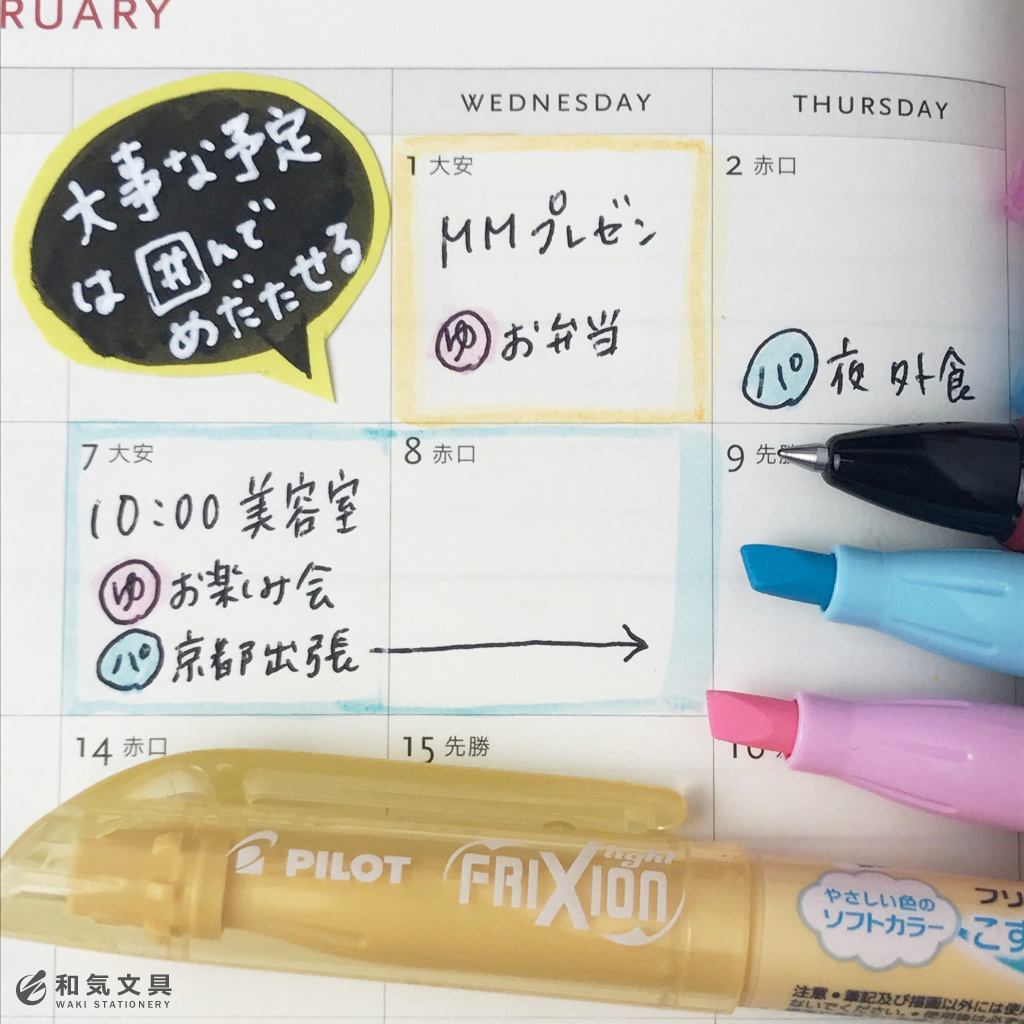 RUARY
WEDNESDAY
THURSDAY
大事な予定
は囲んで
めだたせる
1 大安
MMプレゼン
ゆ お弁当
2 赤口
パ 夜 外食
7 大安
10:00 美容室
ゆ お楽しみ会
パ 京都出張
8 赤口
9 先勝
14 赤口
15 先勝
16
PILOT
FRIXION light
やさしい色の
ソフトカラー
フリ
こす
注意●筆記及び描画以外には使
ないでください。●使用後は必ず
和気文具
WAKI STATIONERY